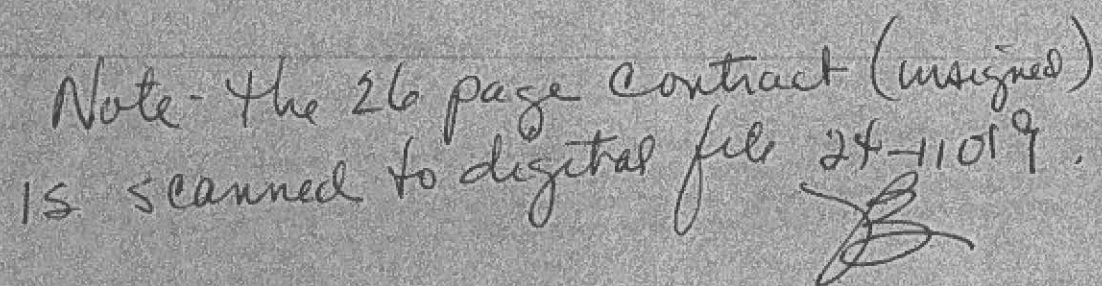 Note - the 26 page contract (unsigned)
is scanned to digital file 24-11019.